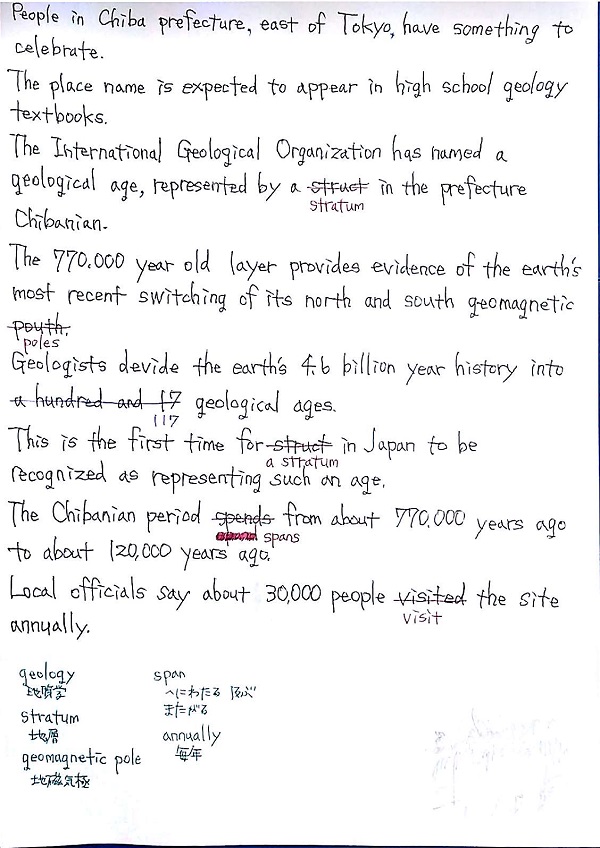 People in Chiba prefecture, east of Tokyo, have something to
celebrate.
The place name is expected to appear in high school geology
textbooks.
The International Geological Organization has named a
geological age, represented by a struct in the prefecture
stratum
Chibanian.
The 770.000 year old layer provides evidence of the earth's
most recent switching of its north and south geomagnetic
pouth.
poles
Geologists devide the earth's 4.6 billion year history into
a hundred and 17 geological ages.
117
This is the first time for struct in Japan to be
a stratum
recognized as representing such an age.
The Chibanian period spends from about 770,000 years ago
spans
to about 120,000 years ago.
Local officials say about 30,000 people visited the site
visit
annually.
geology
地質学
stratum
地層
geomagnetic pole
地磁気極
span
〜にわたる 及ぶ
またがる
annually
毎年